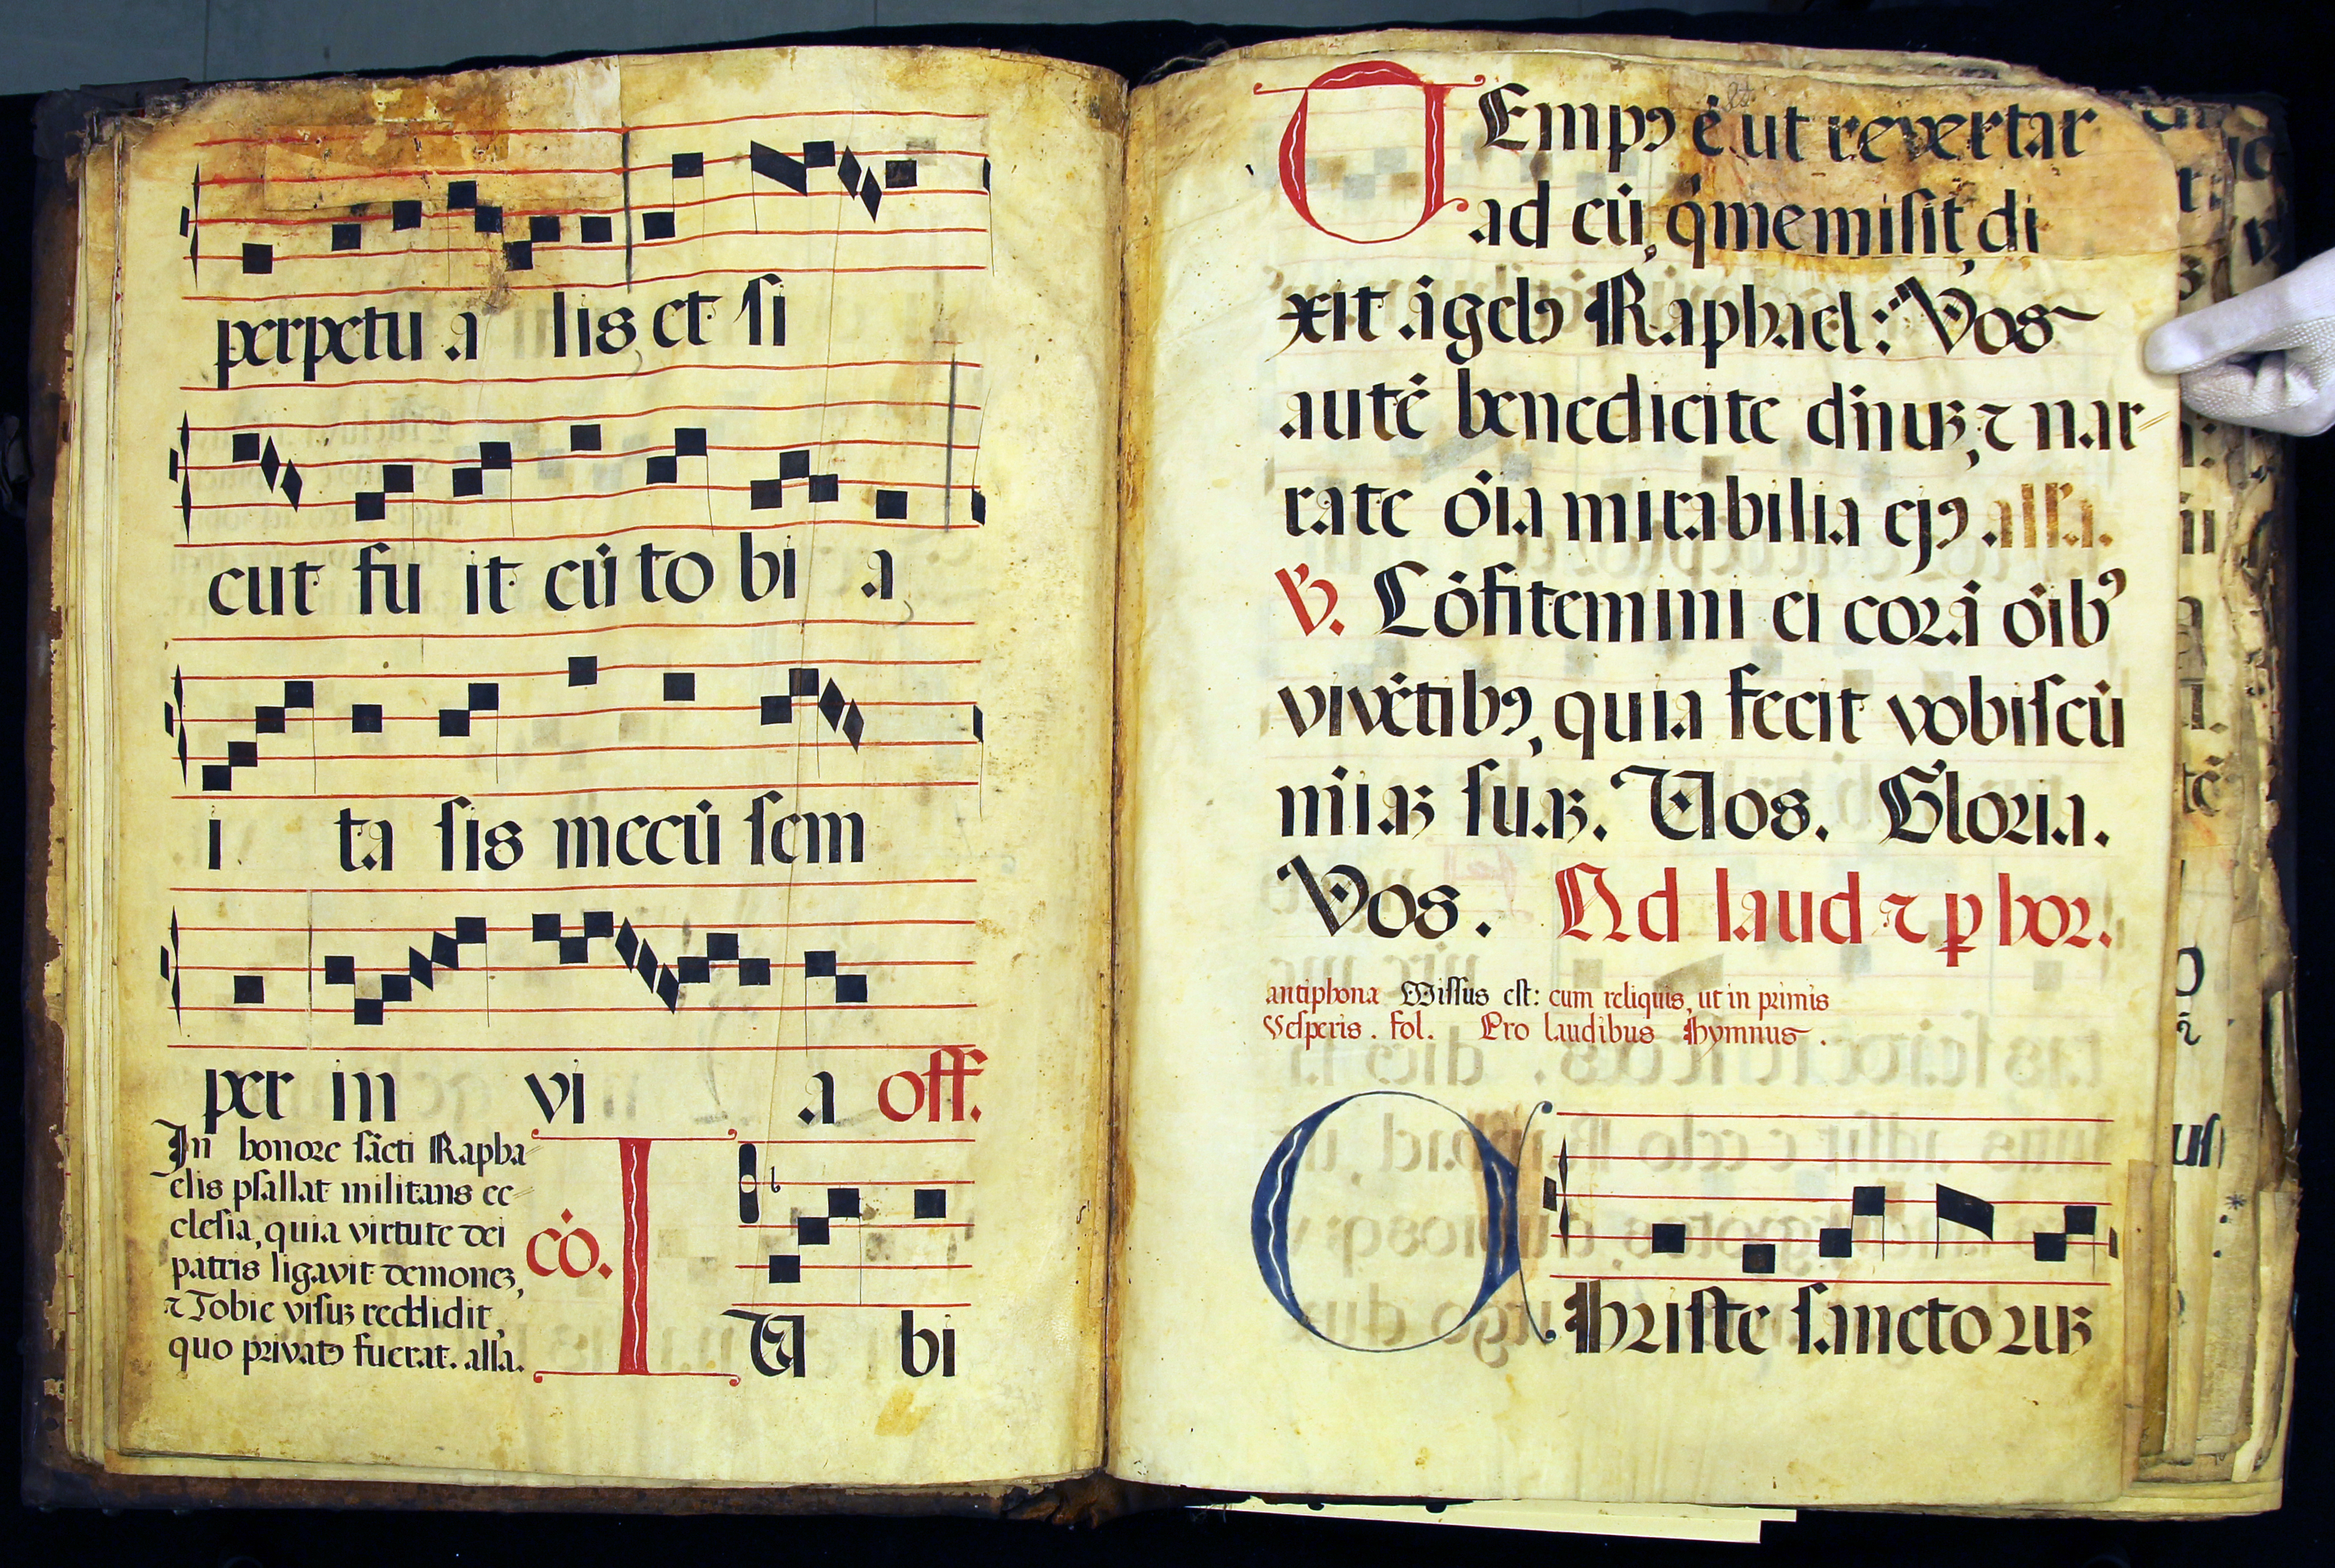 perpetu a lis et si
cut fu it cū to bi a
i ta sis mecū sem
per in vi a off.
In honore sācti Rapha
elis psallat militans ec
clesia, quia virtute dei
patris ligavit demoneȝ,
⁊ Tobie visuȝ reddidit,
quo privatꝰ fuerat. alla.
cō. T
U bi
TEmpꝰ ē ut revertar
ad eū, q̄ me misit, di
xit āgelꝰ Raphael: Vos
autē benedicite dn̄uȝ, ⁊ nar
rate ōia mirabilia ejꝰ alla.
V. Cōfitemini ei corā ōibꝰ
vivētibꝰ, quia fecit vobiscū
mīaȝ suaȝ. Vos. Gloria.
Vos. Ad laud ⁊ ꝑ hor.
antiphona Missus est: cum reliquis, ut in primis
Vesperis. fol. Pro laudibus Hymnus.
Christe sancto ruȝ